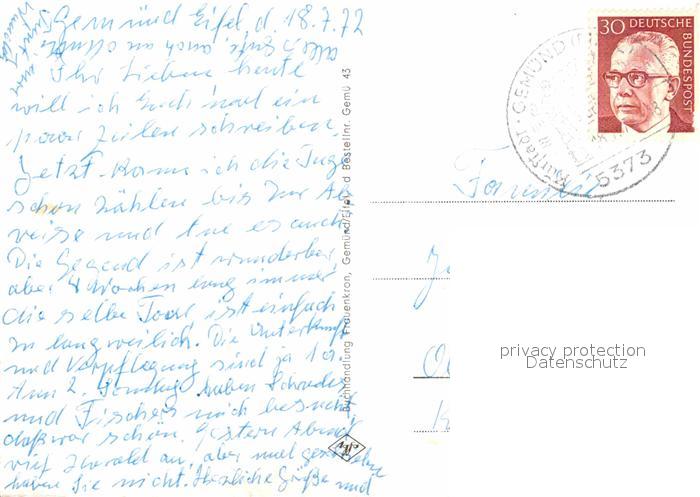 Gemünd Eifel, d 18.7.72
Ihr Lieben heute
will ich Euch mal ein
paar Zeilen schreiben.
Jetzt kann ich die Tage
schon zählen bis zur Ab
reise und tue es auch
Die Gegend ist wunderbar
aber 4 Wochen lang immer
die selbe Tour ist einfach
zu langweilich. Die Unterkunft
und Verpflegung sind ja 1a.
Am 2. Sonntag haben Schrader
und Fischer mich besucht
daß war schön. Gestern Abend
rief Harald an, aber mal geschrieben
haben Sie nicht. Herzliche Grüße und
Buchhandlung Frauenkron, Gemünd/Eifel d Bestellnr. Gemü 43
30 DEUTSCHE
BUNDESPOST
GEMÜND
5373
Familie
privacy protection
Datenschutz